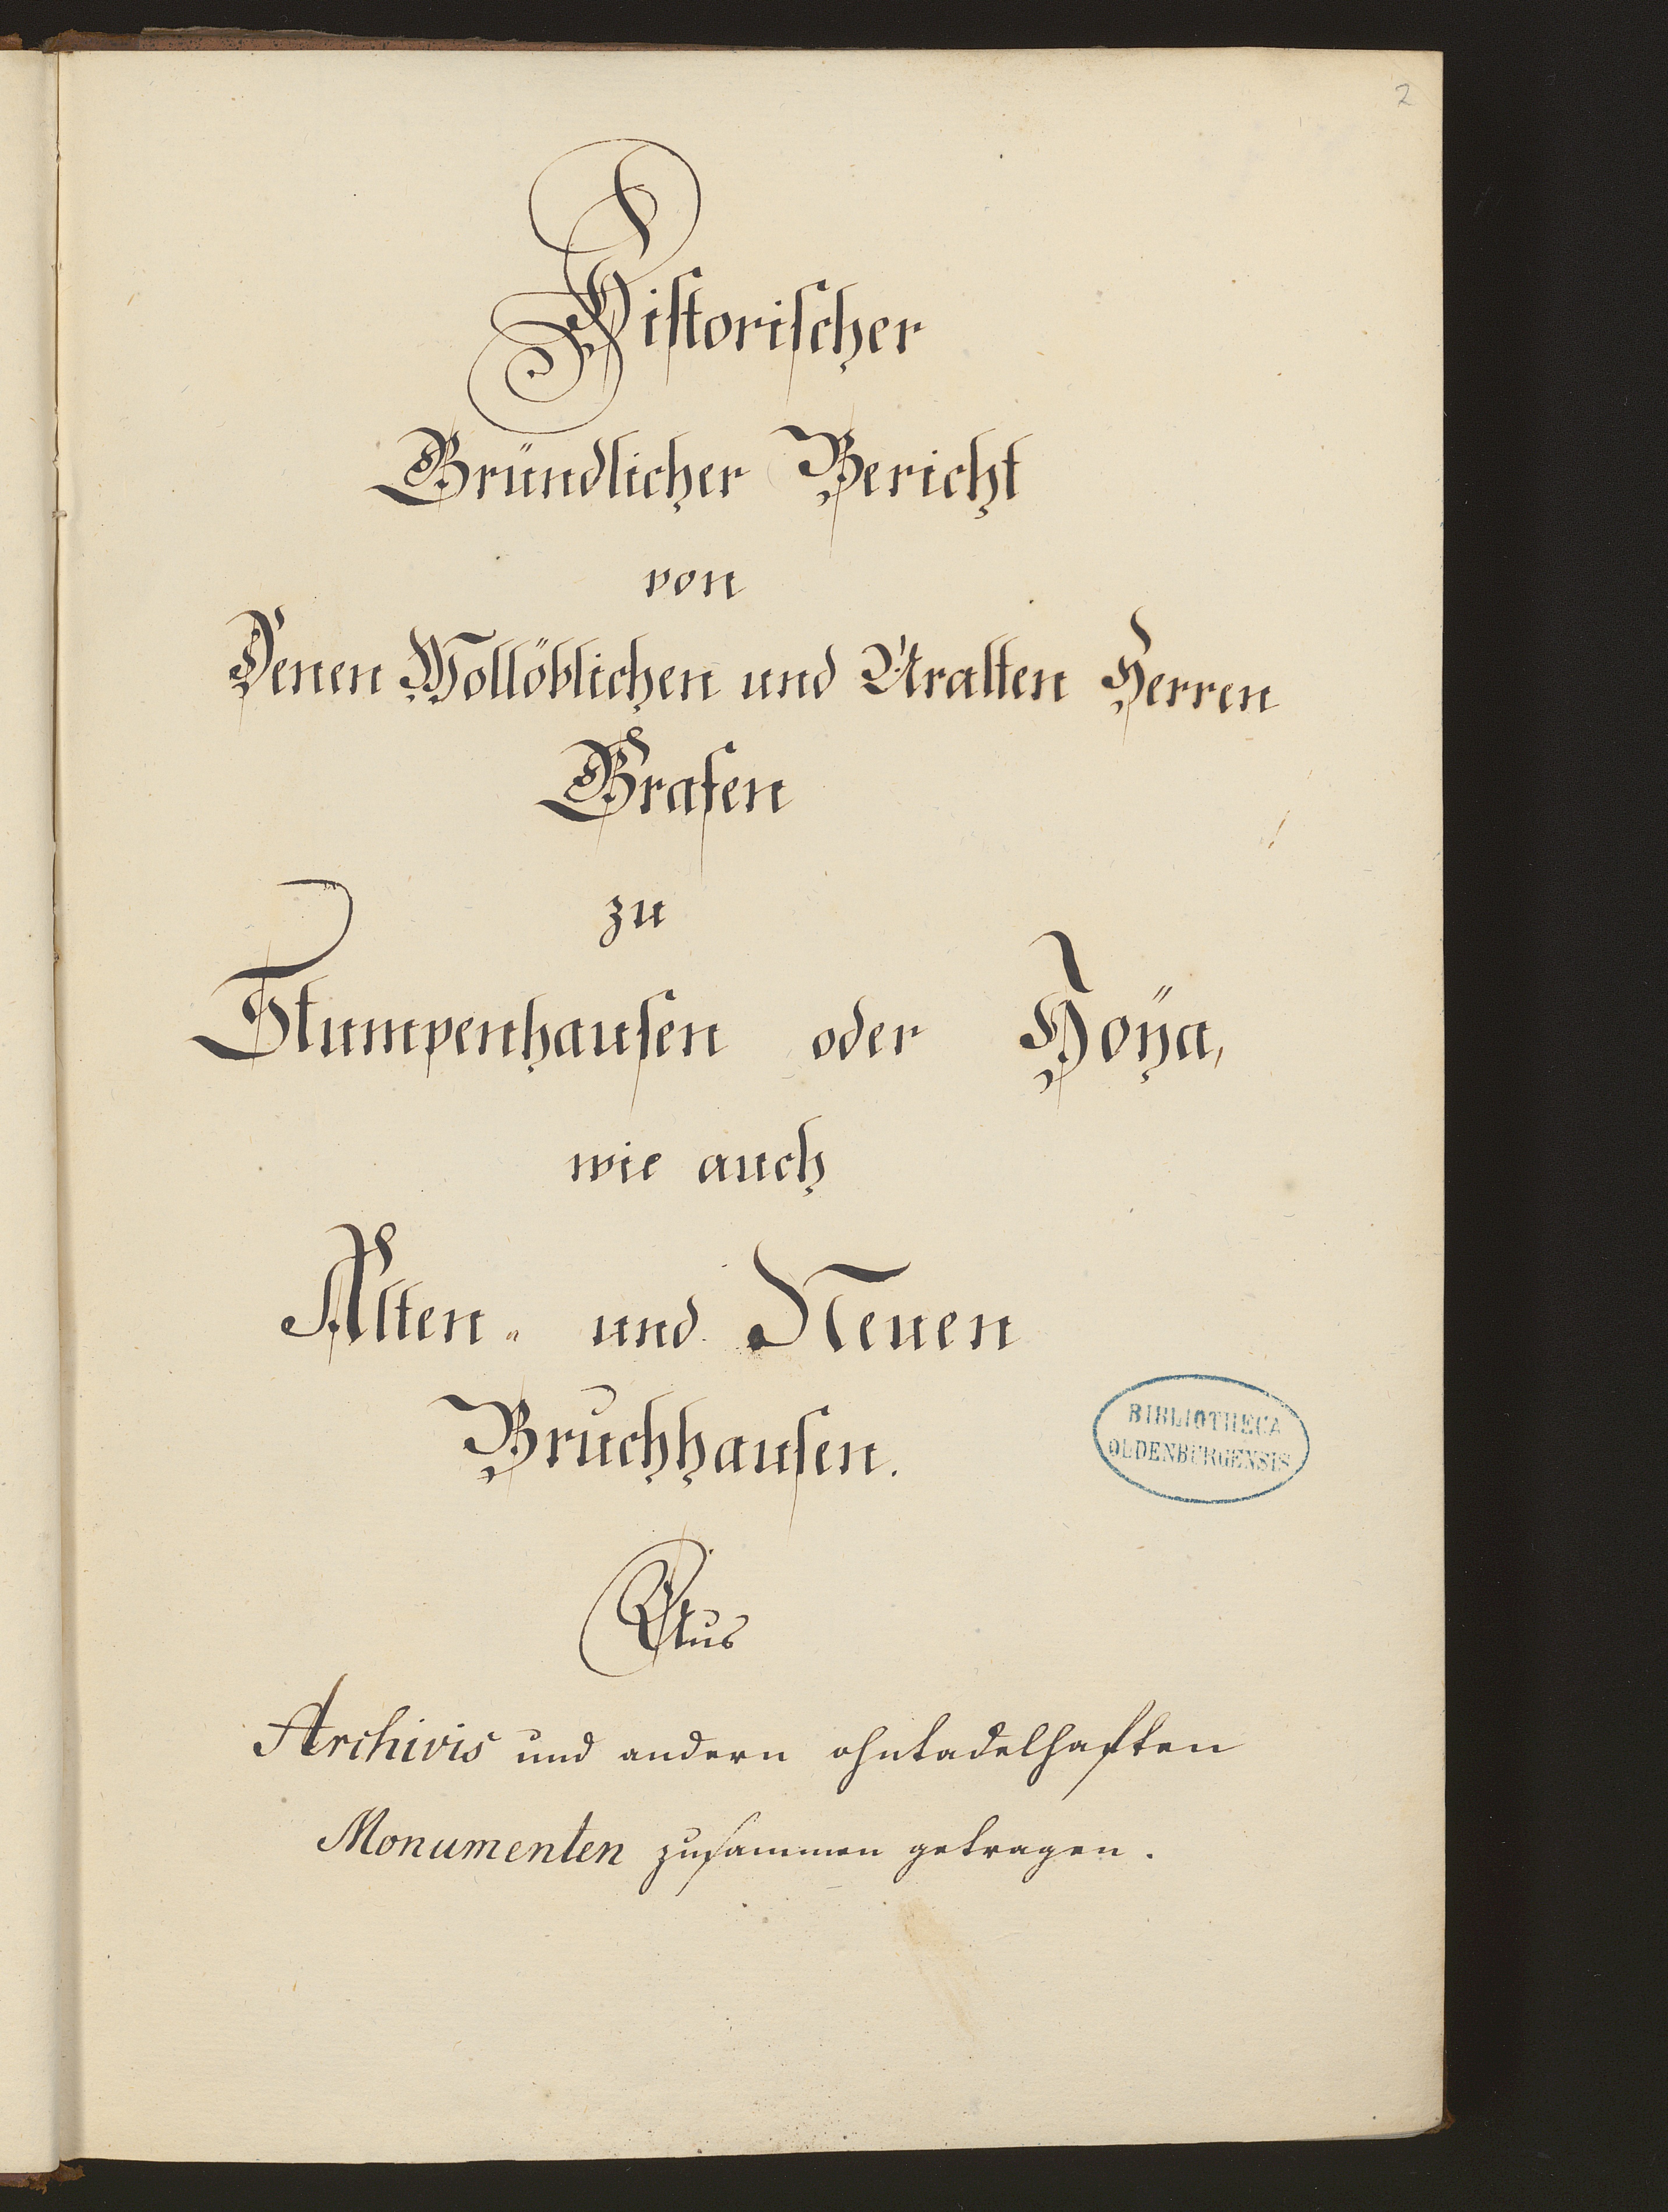 2
Historischer
Gründlicher Bericht
von
Denen Wollöblichen und Uralten Herren
Grafen
zu
Stumpenhausen oder Hoÿa,
wie auch
Alten- und Neuen
Bruchhausen.
BIBLIOTHECA
OLDENBURGENSIS
Aus
Archivis und andern ohntadelhaften
Monumenten zusammen getragen.